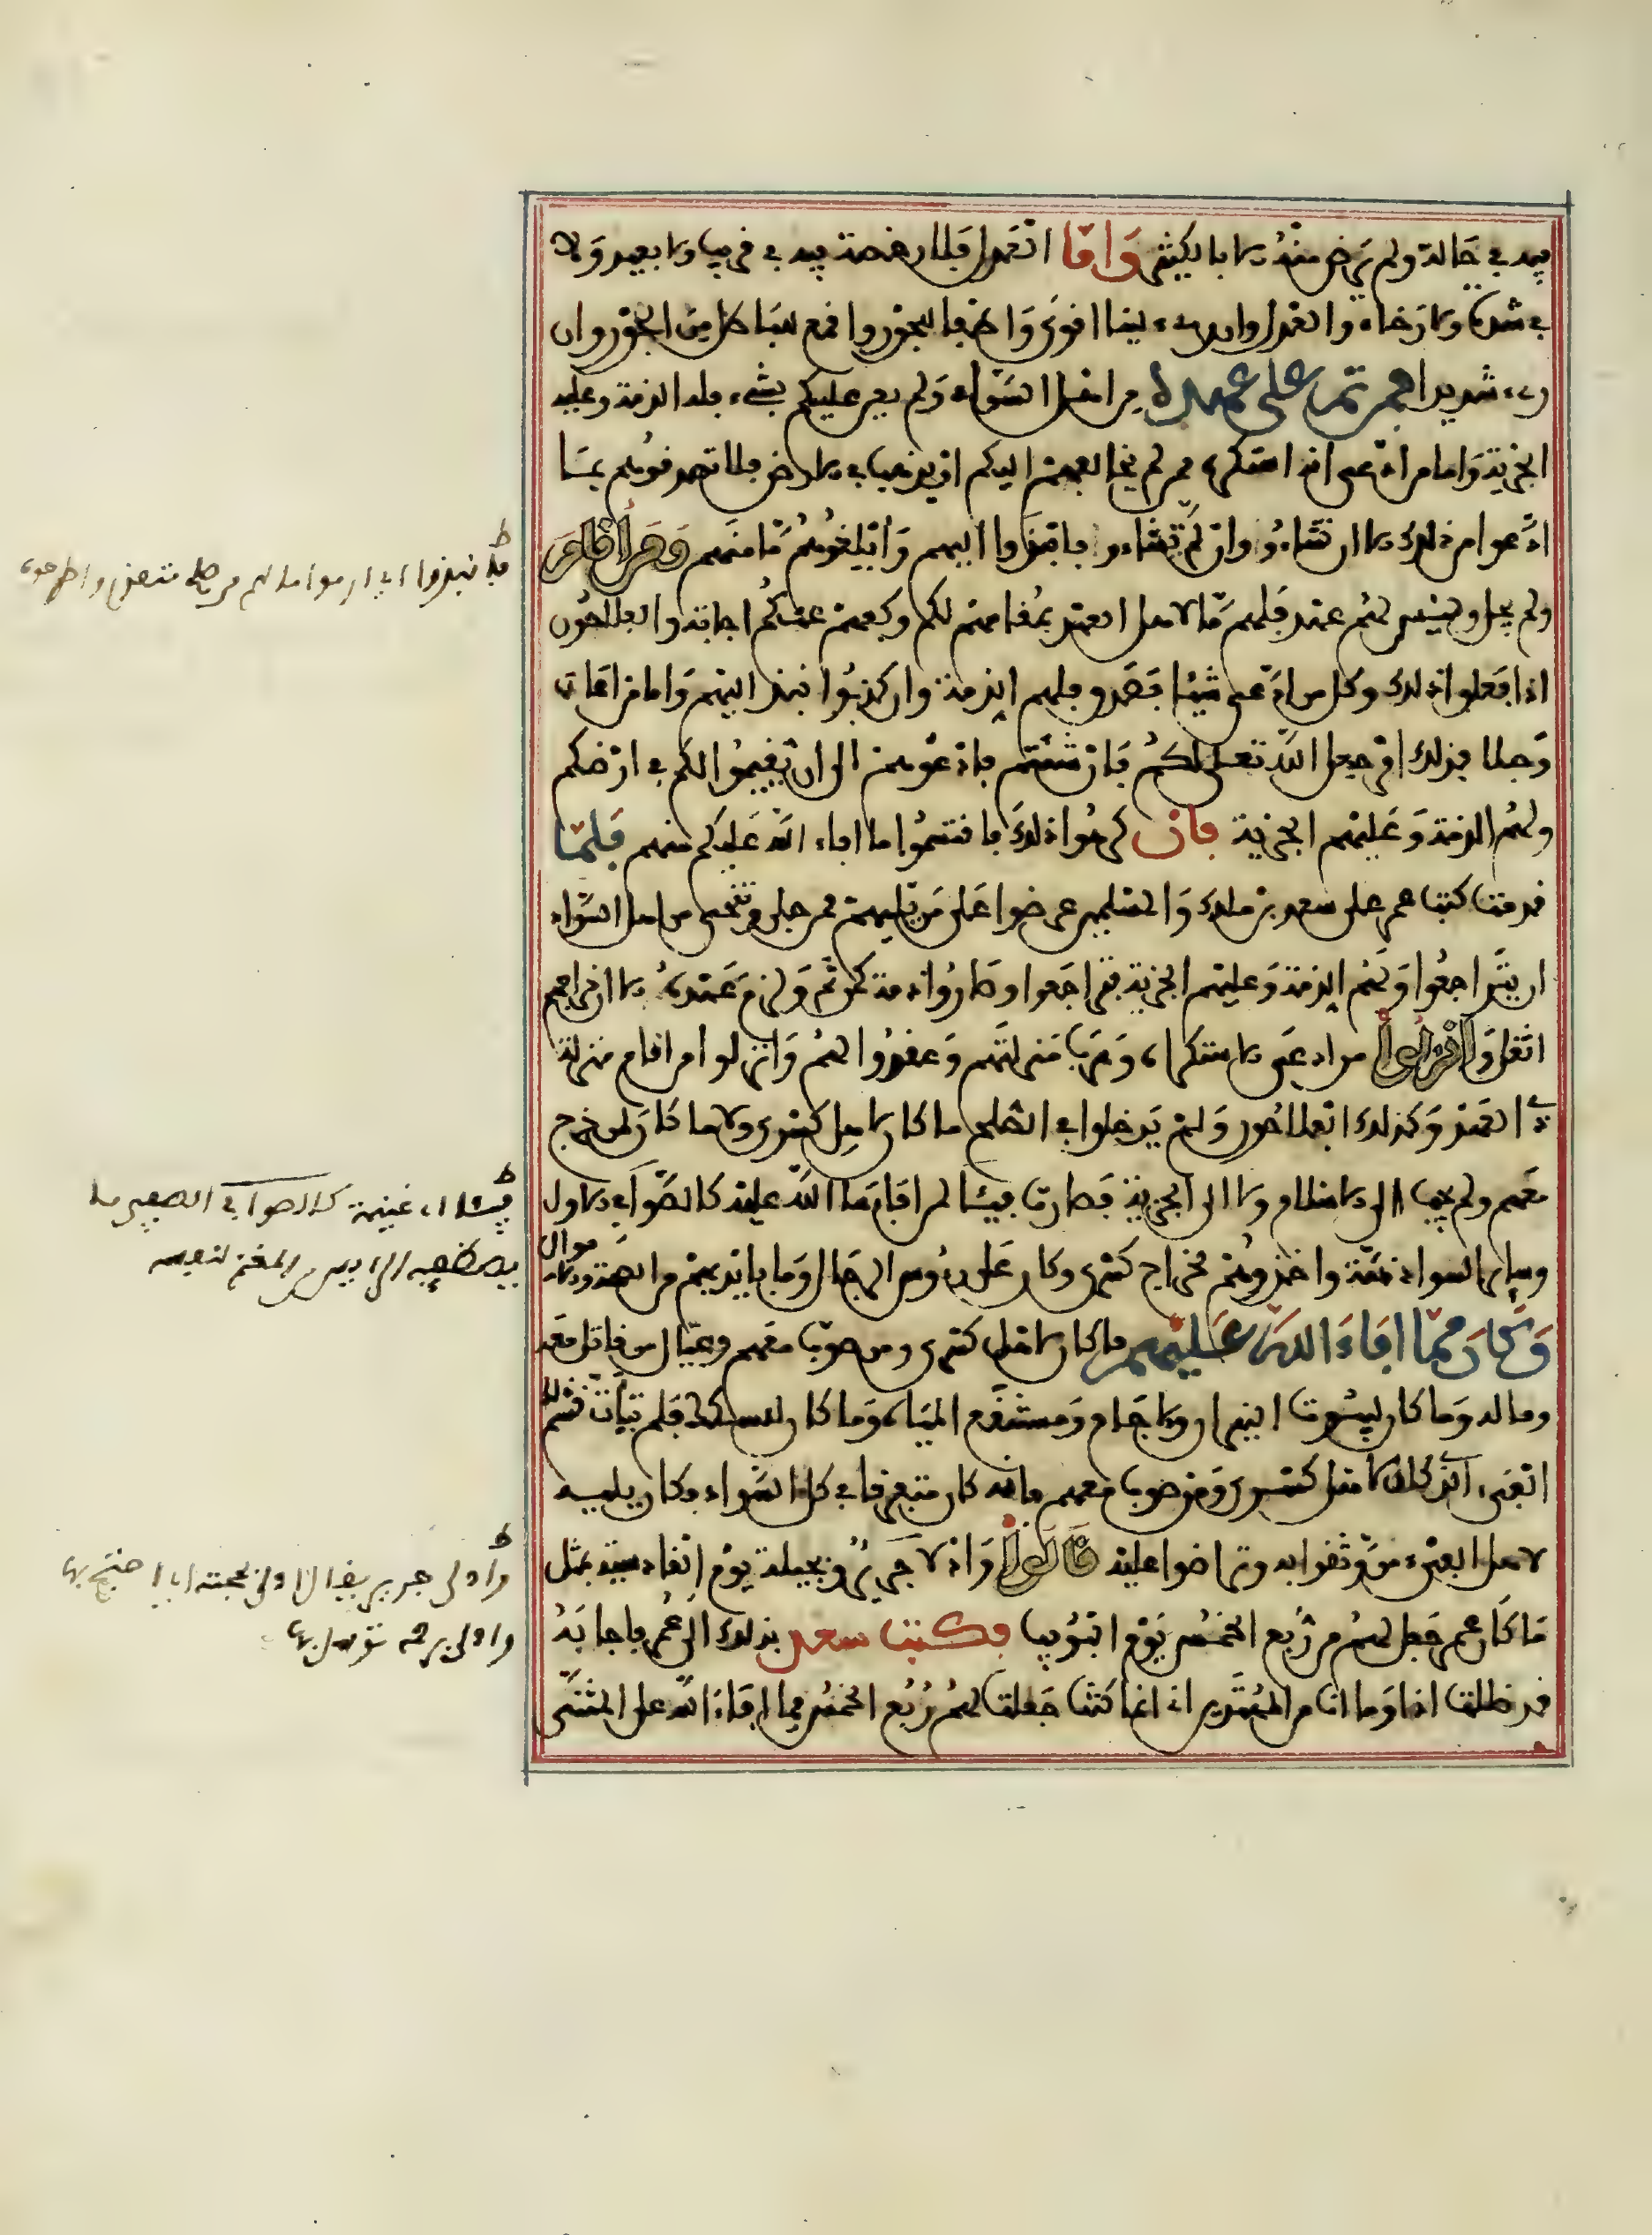 فيه في حالة ولم يرض منه الا بالكثير واما العدل فلا رخصة فيه في قريب ولا بعيد ولا
في شدة ولا رخاء والعدل وان رءي لينا اقوى واطفا للجور واقمع للباطل من الجور وان
رءي شديدا فمن تم على عهده من اهل السواد ولم يعن عليكم بشيء فله الذمة وعليه
الجزية واما من ادعى انه استكره ممن لم يخالفهم اليكم او يذهب في الارض فلا تصدقوهم بما
ادعوا من ذلك الا ان تشاءوا وان لم تشاءوا فانبذوا اليهم وابلغوهم مامنهم ومن اقام
ولم يجل وليس لهم عهد فلهم ما لاهل العهد بمقامهم لكم وكفهم عنكم اجابة والفلاحون
اذا فعلوا ذلك وكل من ادعى شيئا فصدق فلهم الذمة وان كذبوا نبذ اليهم واما من اعان
وجلا فذلك امر جعله الله تعلى لكم فان شئتم فادعوهم الى ان يقيموا لكم في ارضكم
ولهم الذمة وعليهم الجزية فان كرهوا ذلك فاقتسموا ما افاء الله عليكم منهم فلما
قدمت كتب عمر على سعد بن ملك والمسلمين عرضوا على من يليهم ممن جلا وتنحى من اهل السواد
ان يتراجعوا ولهم الذمة وعليهم الجزية فتراجعوا وصاروا ذمة كمن تم ولزم عهده الا ان خراجهم
اثقل وانزلوا من ادعى الاستكراه وهرب منزلتهم وعقدوا لهم وانزلوا من اقام منزلة
ذي العهد وكذلك الفلاحون ولم يدخلوا في الصلح ما كان لال كسرى ولا ما كان لمن خرج
معهم ولم يجب الى الاسلام ولا الى الجزية فصارت فيئا لمن افاءها الله عليه كالصوافي الاول
وسائر السواد ذمة واخذوهم بخراج كسرى وكان على رءوس الرجال وما في ايديهم من الحصة والاموال
وكان مما افاء الله عليهم ما كان لال كسرى ومن صوب معهم وعيال من قاتل معه
وماله وما كان لبيوت النيران والاجام ومستنقع المياه وما كان للسكك فلم يتات قسم ذلك
الفيء الذي كان لال كسرى ومن صوب معهم لانه كان متفرقا في كل السواد وكان يليه
لاهل الفيء من وثقوا به وتراضوا عليه قالوا وادلى جرير وبجيلة يوم القادسية بمثل
ما كان عمر جعل لهم من ربع الخمس يوم البويب فكتب سعد بذلك الى عمر فاجابه
قد ظلت اذا وما انا من المهتدين اذ انما كنت جعلت لهم ربع الخمس مما افاء الله على المثنى
ط فانبذوا اي ارموا
ط فيئا اي غنيمة كالصوافي
يصطفيه الرئيس من المغنم لنفسه
ط وادلى جرير يقال ادلى بحجته اي احتج بها
وادلى برحمه توسل بها